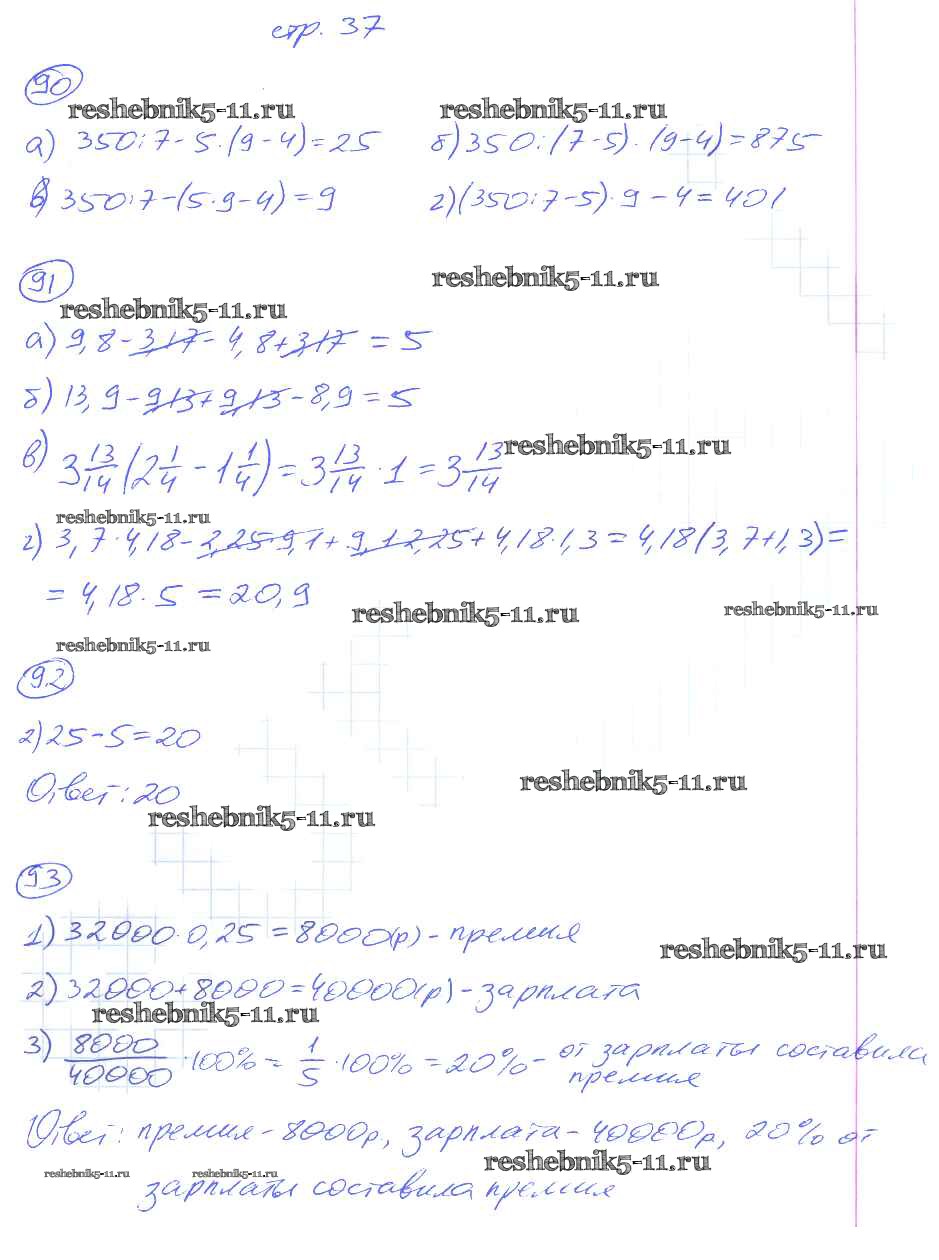 стр. 37
90
reshebnik5-11.ru reshebnik5-11.ru
а) 350:7-5·(9-4)=25 б) 350:(7-5)·(9-4)=875
в) 350:7-(5·9-4)=9 г) (350:7-5)·9-4=401
91
reshebnik5-11.ru
reshebnik5-11.ru
а) 9,8-3,17-4,8+3,17 = 5
б) 13,9-9,13+9,13-8,9=5
в) 3 13/14 (2 1/4 - 1 1/4) = 3 13/14 · 1 = 3 13/14
reshebnik5-11.ru
reshebnik5-11.ru
г) 3,7·4,18-2,25·9,1+9,1·2,25+4,18·1,3=4,18(3,7+1,3)=
= 4,18·5 = 20,9
reshebnik5-11.ru reshebnik5-11.ru
reshebnik5-11.ru
92
2) 25-5=20
Ответ: 20
reshebnik5-11.ru
reshebnik5-11.ru
93
1) 32000·0,25 = 8000(р) - премия
reshebnik5-11.ru
2) 32000+8000=40000(р) - зарплата
reshebnik5-11.ru
3) 8000/40000 ·100% = 1/5 ·100% = 20% - от зарплаты составила
премия
Ответ: премия - 8000р, зарплата - 40000р, 20% от
reshebnik5-11.ru
reshebnik5-11.ru reshebnik5-11.ru
зарплаты составила премия